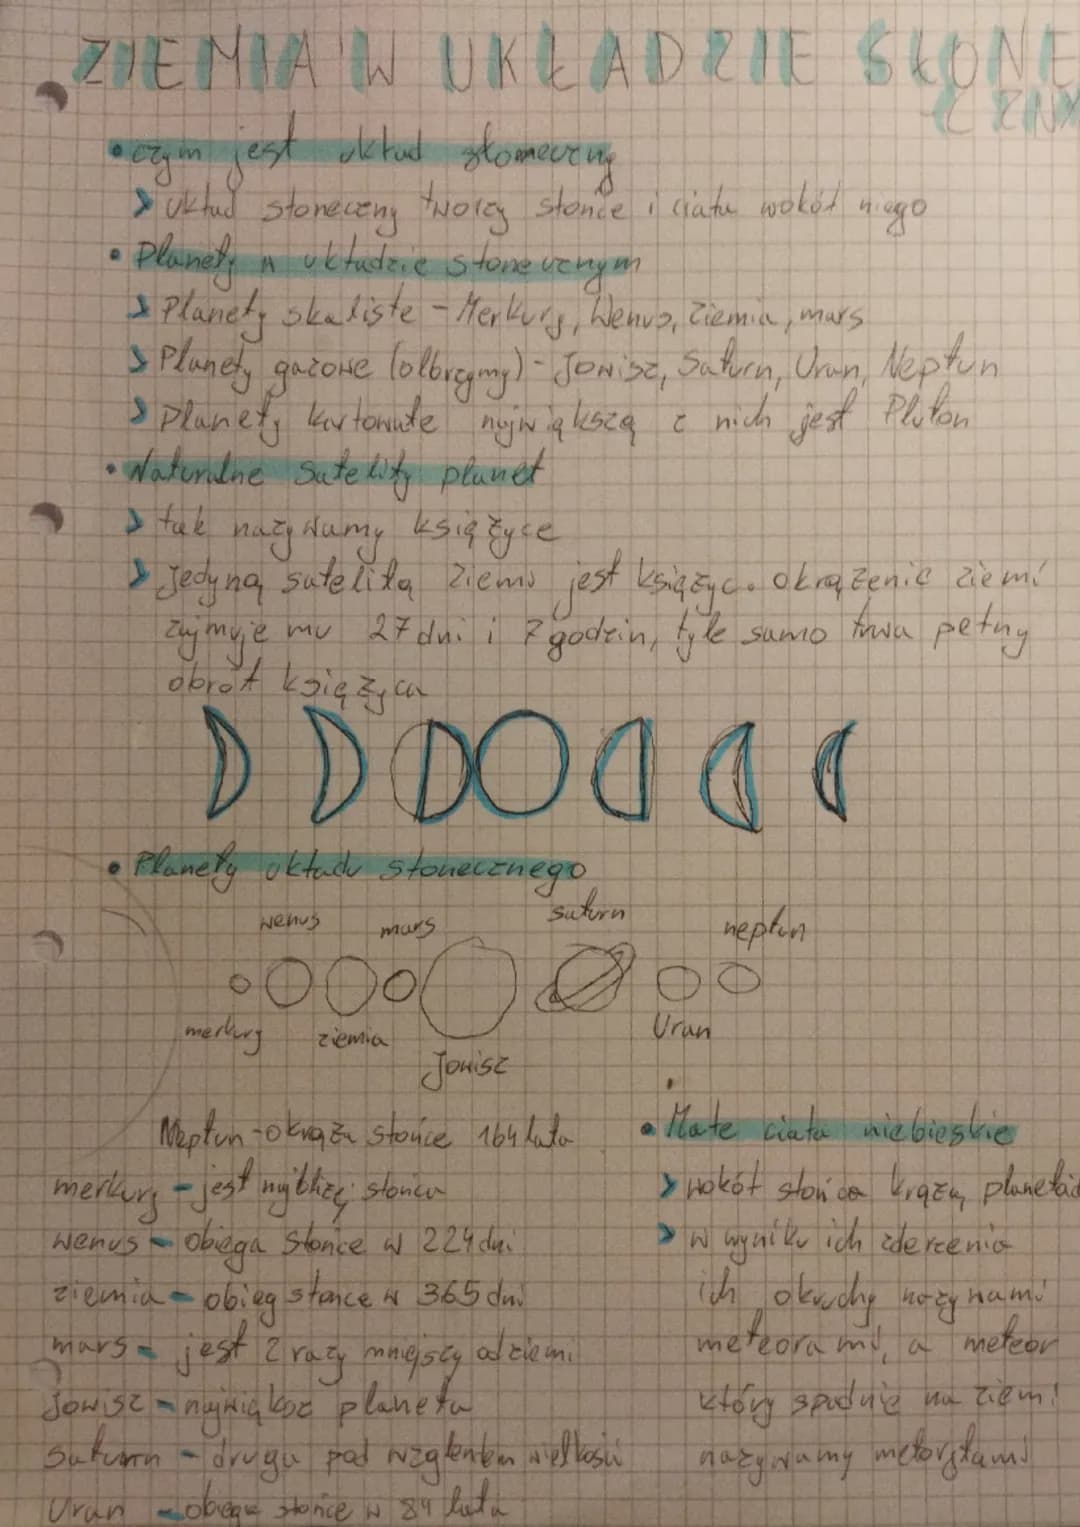 ZIEMIA W UKŁADZIE SŁONE
CZNY
• czym jest układ słoneczny
> układ słoneczny tworzy słońce i ciała wokół niego
• Planety w układzie słonecznym
> Planety skaliste - Merkury, Wenus, Ziemia, mars
> Planety gazowe (olbrzymy) - Jowisz, Saturn, Uran, Neptun
> Planety karłowate największą z nich jest Pluton
• Naturalne Satelity planet
> tak nazywamy księżyce
> Jedyną satelitą Ziemi jest księżyc. Okrążenie ziemi
zajmuje mu 27 dni i 7 godzin, tyle samo trwa pełny
obrót księżyca
• Planety układu słonecznego
wenus mars saturn neptun
merkury ziemia Jowisz Uran
Neptun - okrąża słońce 164 lata
merkury - jest najbliżej słońca
wenus - obiega słońce w 224 dni
ziemia - obieg słońce w 365 dni
mars - jest 2 razy mniejszy od ziemi
Jowisz - największa planeta
Saturn - druga pod względem wielkości
Uran - obiega słońce w 84 lata
• Małe ciała niebieskie
> wokół słońca krążą planetoid
> w wyniku ich zderzenia
ich okruchy nazywami
meteorami, a meteor
który spadnie na ziemi
nazywamy metorytami